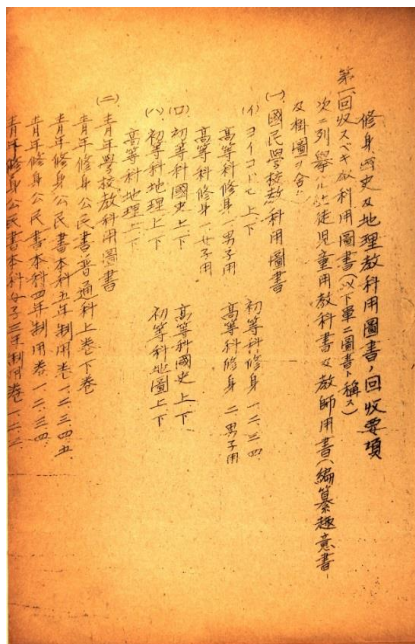 修身國史及地理教科用圖書ノ回收要項
第一回收スベキ教科用圖書(以下單ニ圖書ト稱ス)
次ニ列擧ノ生徒兒童用教科書及教師用書(編纂趣意書
及掛圖ヲ含ム
(一)國民學校教科用圖書
(イ)ヨイコドモ上、下 初等科修身一、二、三、四
高等科修身一男子用 高等科修身二男子用
高等科修身一女子用
(ロ)初等科國史上、下 高等科國史上、下
(ハ)初等科地理上、下 初等科地圖上、下
高等科地理上、下
(二)青年學校教科用圖書
青年修身公民書普通科上卷下卷
青年修身公民書本科五年制用卷一、二、三、四、五
青年修身公民書本科四年制用卷一、二、三、四
青年修身公民書本科女子三年制用卷一、二、